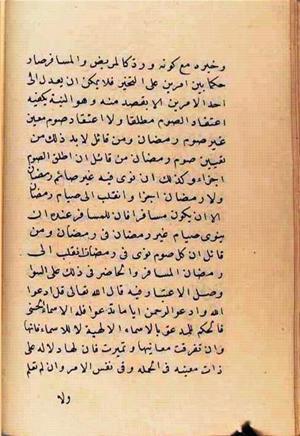 وخيره مع كونه ورد كالمريض والمسافر صاد
حكما بين امرين على التخيير فلا يمكن ان يعدل الى
احد الامرين الا بقصد منه وهو النية يكفيه
اعتقاد الصوم مطلقا ولا اعتقاد صوم معين
غير صوم رمضان ومن قائل لا بد ذلك من
تعيين صوم رمضان من قائل ان اطلق الصوم
اجزاء وكذلك ان نوى فيه غير صائم رمضان
ولا رمضان اجزا وانقلب الى صيام رمضان
الا ان يكون مسافرا فان للمسافر عنده ان
ينوى صيام غير رمضان فى رمضان ومن
قائل ان كل صوم نوى فى رمضان انقلب الى
رمضان المسافر والحاضر فى ذلك على السوا
وصل الاعتبار فيه قال الله تعالى قل ادعوا
الله وادعوا الرحمن ايا ما تدعوا فله الاسماء الحسنى
فالحكم للمدعو بالاسماء الالهية لا للاسماء فانها
وان تفرقت معانيها وتميزت فان لها دلاله على
ذات معينه فى الجمله وفى نفس الامر وان لم تعلم
ولا